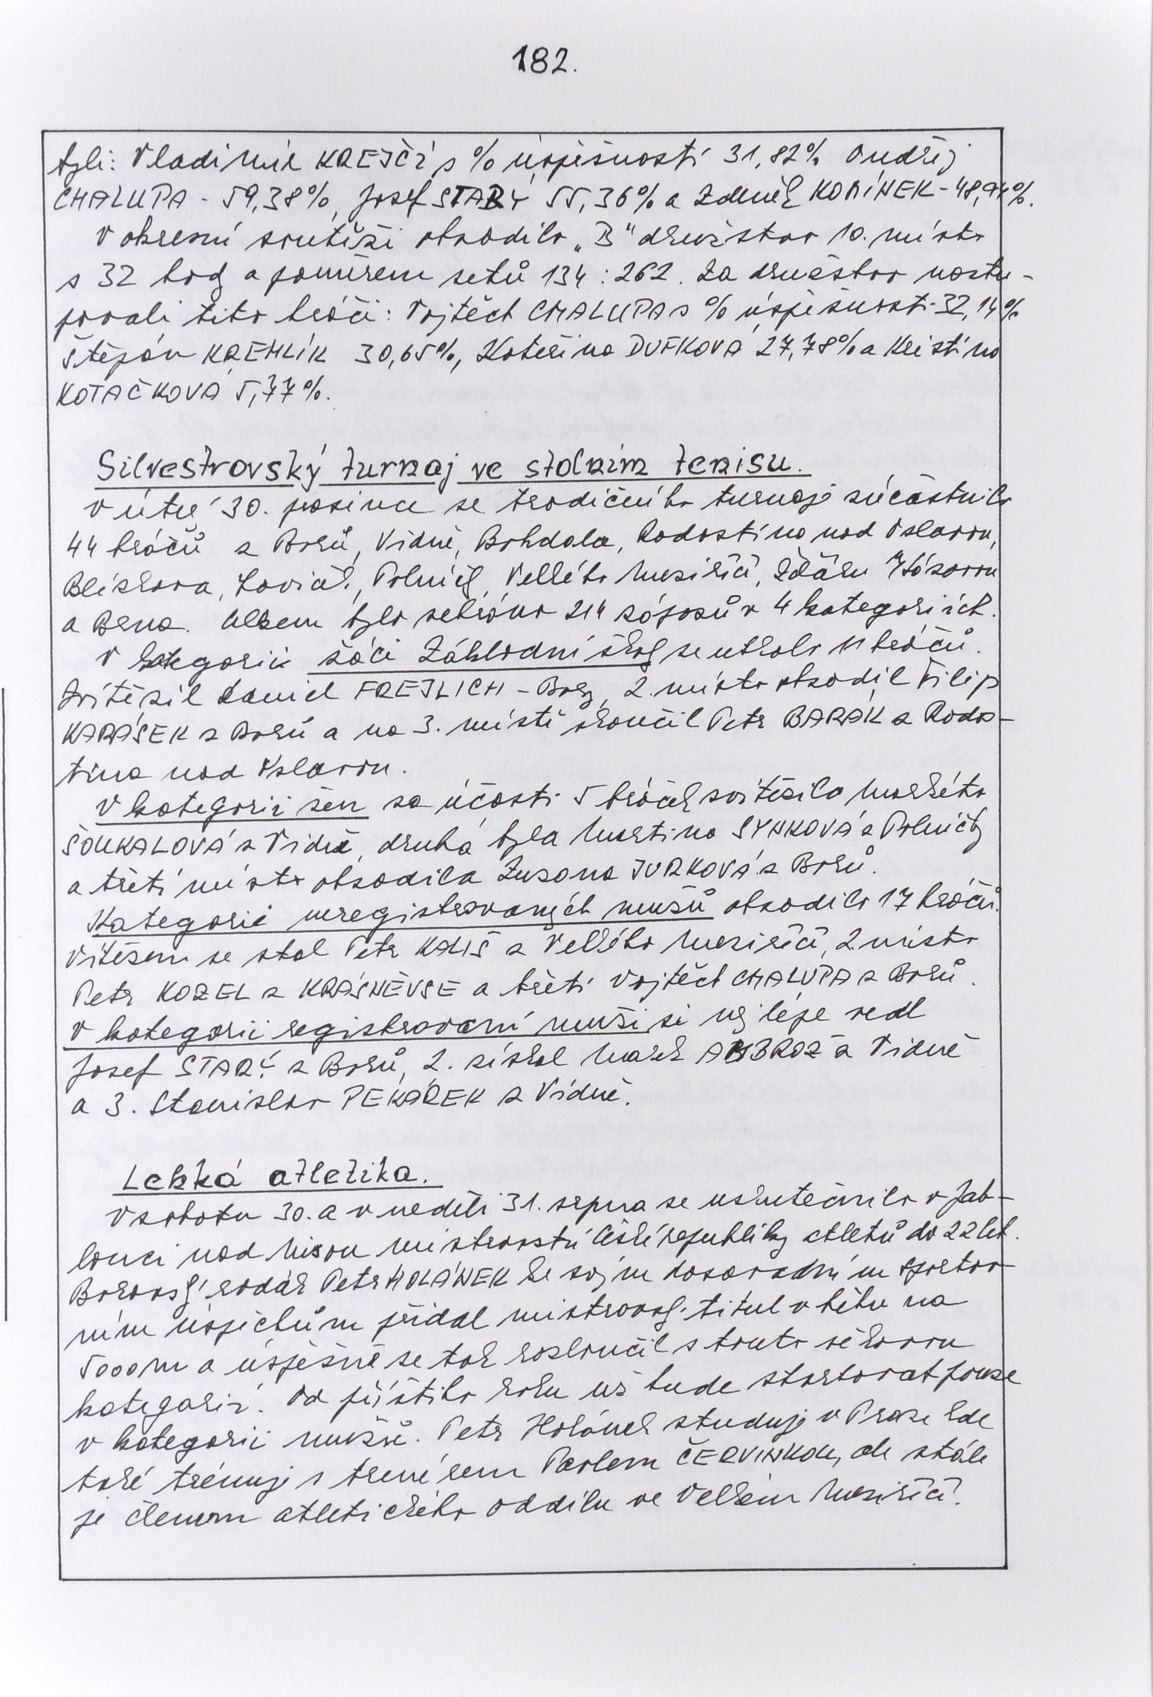 182.
byli: Vladimír KREJČÍ s % úspěšnosti 31,82% Ondřej
CHALUPA - 59,38%, Josef STARÝ 55,36% a Zdeněk KOMÍNEK - 48,94%.
V okresní soutěži obsadilo „B" družstvo 10. místo
s 32 body a poměrem setů 134 : 262. Za družstvo nastu-
povali tito hráči: Vojtěch CHALUPA s % úspěšnosti 32,14%
Štěpán KREMLÍK 30,65%, Kateřina DUFKOVÁ 27,78% a Kristina
KOTAČKOVÁ 5,77%.
Silvestrovský turnaj ve stolním tenisu.
V úterý 30. prosince se tradičního turnaje zúčastnilo
44 hráčů z Borů, Vídně, Bohdalce, Radostína nad Oslavou,
Blízkova, Laviček, Polničky, Velkého Meziříčí, Žďáru n/Sázavou
a Brna. Celkem bylo sehráno 214 zápasů v 4 kategoriích.
V kategorii žáci Základní školy se utkalo 11 hráčů.
Zvítězil Daniel FREJLICH - Bory, 2. místo obsadil Filip
KARÁSEK z Borů a na 3. místě skončil Petr BARÁK z Rados-
tína nad Oslavou.
V kategorii žen za účasti 5 hráček zvítězila Markéta
SOUKALOVÁ z Vídně, druhá byla Martina SYNKOVÁ z Polničky
a třetí místo obsadila Zuzana JURKOVÁ z Borů.
Kategorii neregistrovaných mužů obsadilo 17 hráčů.
Vítězem se stal Petr KALIŠ z Velkého Meziříčí, 2 místo
Petr KOZEL z KRÁSNĚVSE a třetí Vojtěch CHALUPA z Borů.
V kategorii registrovaní muži si nejlépe vedl
Josef STARÝ z Borů, 2. získal Marek AMBROŽ z Vídně
a 3. Stanislav PEKÁREK z Vídně.
Lehká atletika.
V sobotu 30. a v neděli 31. srpna se uskutečnilo v Jab-
lonci nad Nisou mistrovství České republiky atletů do 22 let.
Borovský rodák Petr HOLÁNEK ke svým dosavadním sportov-
ním úspěchům přidal mistrovský titul v běhu na
5000m a úspěšně se tak rozloučil s touto věkovou
kategorií. Od příštího roku už bude startovat pouze
v kategorii mužů. Petr Holánek studuje v Praze kde
také trénuje s trenérem Pavlem ČERVINKOU, ale stále
je členem atletického oddílu ve Velkém Meziříčí.